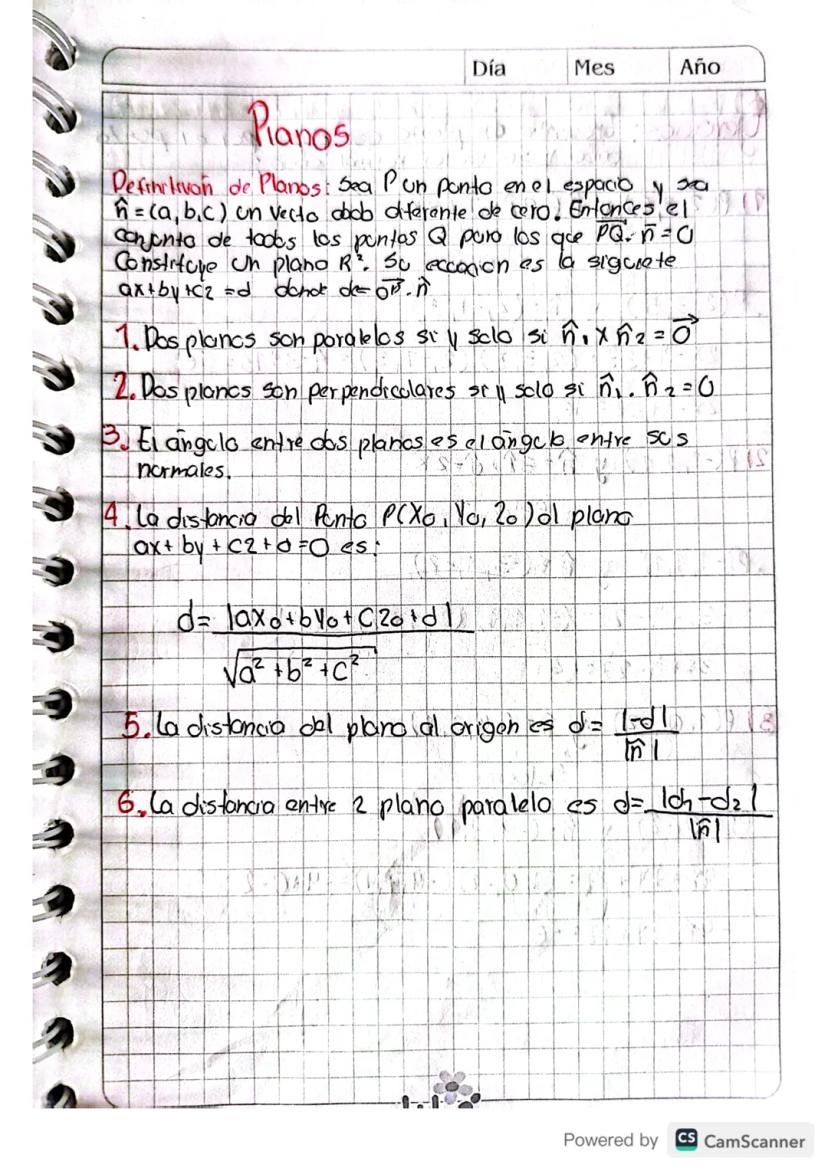 Día Mes Año
Planos
Definición de Planos: Sea P un punto en el espacio y sea
n̂ = (a, b, c) un vecto dado diferente de cero. Entonces el
conjunto de todos los puntos Q para los que PQ⃗ . n̄ = 0
Constituye un plano R³. Su ecuación es la siguiete
ax+by+cz =d donde d= 0P⃗ . n̂
1. Dos planos son paralelos si y solo si n̂₁ x n̂₂ = 0⃗
2. Dos planos son perpendiculares si y solo si n̂₁ . n̂₂ = 0
3. El ángulo entre dos planos es el ángulo entre sus
normales.
4. La distancia del Punto P(X₀, Y₀, Z₀) al plano
ax+ by + cz + d = 0 es:
d= |ax₀+by₀+cz₀+d|
√a² + b² + c²
5. La distancia del plano al origen es d= |-d|
|n̂|
6. La distancia entre 2 plano paralelo es d= |d₁-d₂|
|n̂|
Powered by CS CamScanner